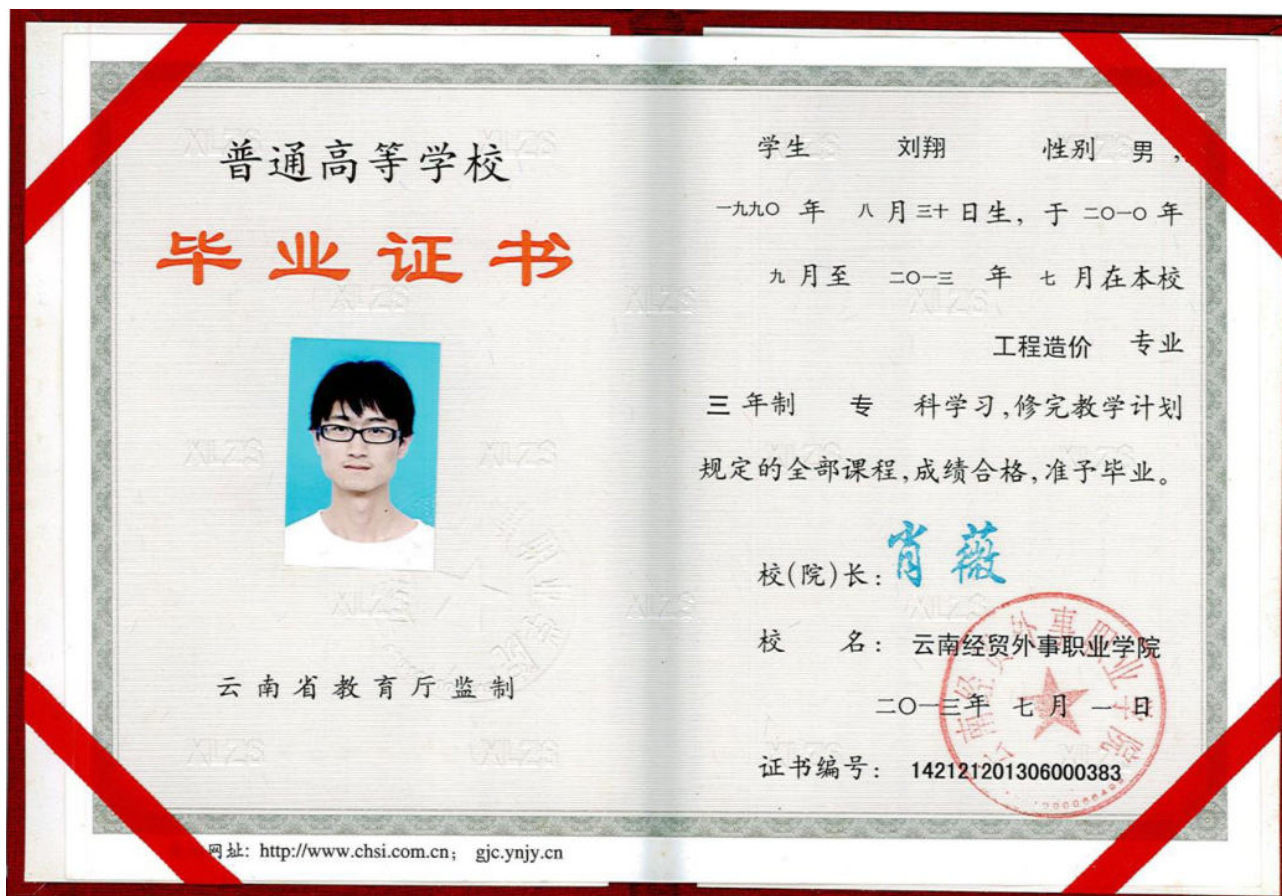 普通高等学校
毕业证书
云南省教育厅监制
网址: http://www.chsi.com.cn; gjc.ynjy.cn
学生 刘翔 性别 男,
一九九〇年 八月三十日生,于二〇一〇年
九月至 二〇一三 年 七月在本校
工程造价 专业
三年制 专 科学习,修完教学计划
规定的全部课程,成绩合格,准予毕业。
校(院)长: 肖薇
校 名: 云南经贸外事职业学院
二〇一三年 七月 一日
证书编号: 142121201306000383
云南经贸外事职业学院
XLZS